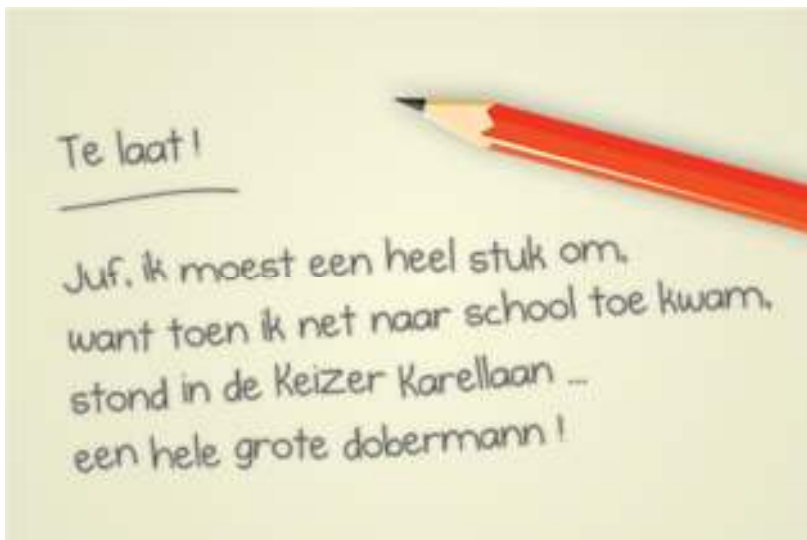 Te laat!
Juf, ik moest een heel stuk om,
want toen ik net naar school toe kwam,
stond in de Keizer Karellaan ...
een hele grote dobermann!